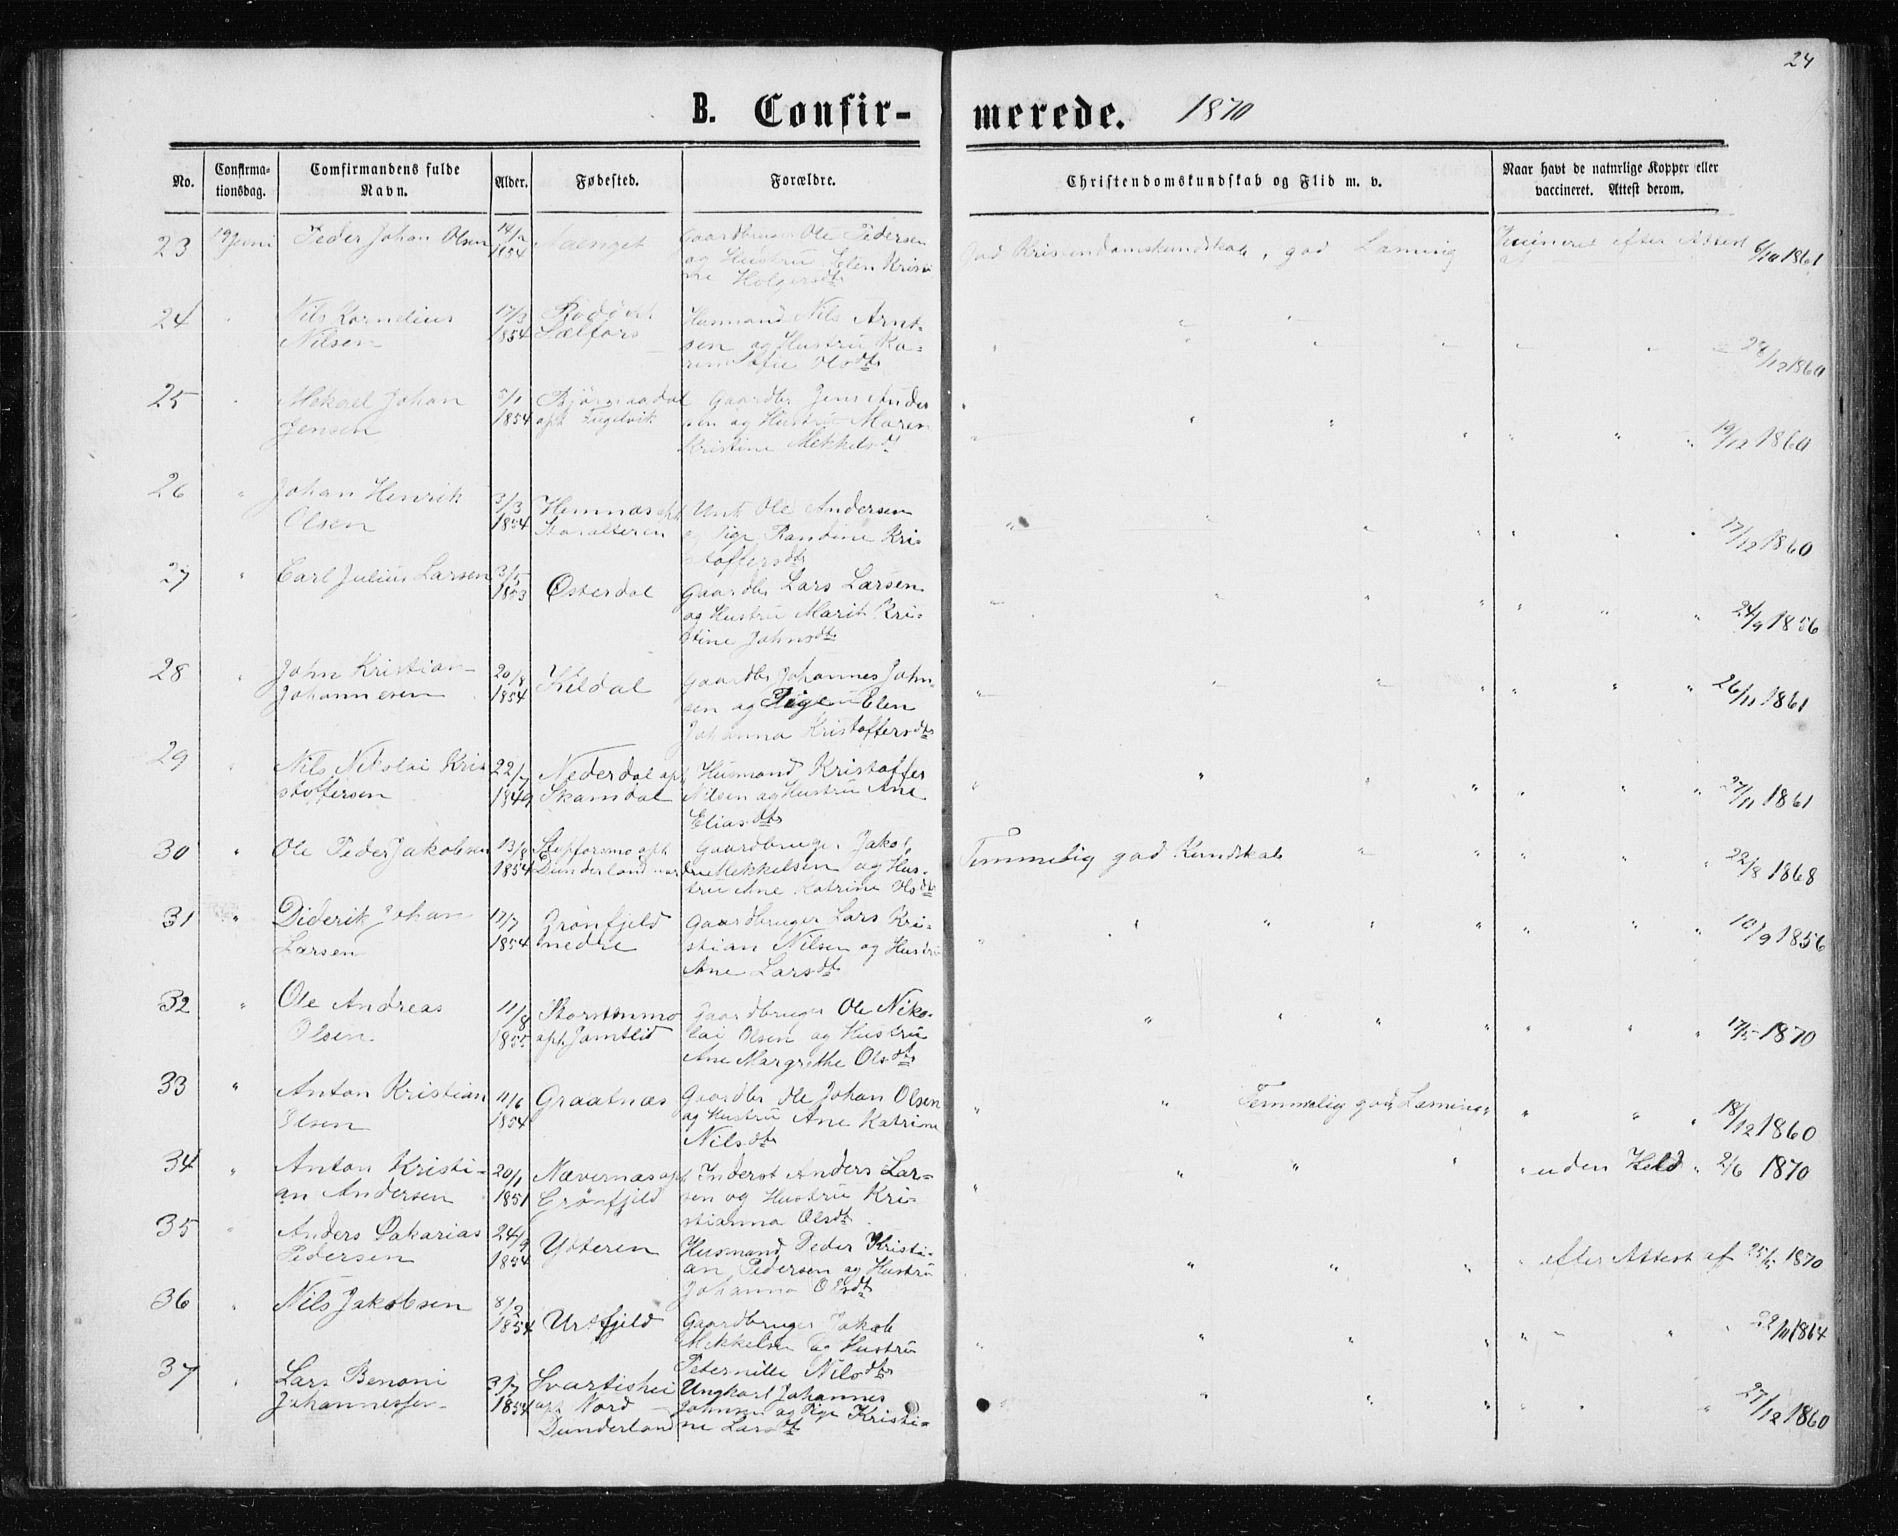 24
B. Confir-
merede. 1870
No.
Confirma-
tionsdag.
Comfirmandens fulde
Navn.
Alder.
Fødested.
Forældre.
Christendomskundskab og Flid m. v.
Naar havt de naturlige Kopper eller
vaccineret. Attest derom.
23 19 Juni Peder Johan Olsen 14/2 1854
Gaardbruger Ole Pedersen
og Hustru Elen Kristi
ne Holgersdtr
God Kristendomskundskab, god Læsning
Vaccineret efter Attest 6/10 1861
24 " Nils Kornelius
Nilsen
17/3 1854
Sælfors
Husmand Nils Arnt-
sen og Hustru Ka-
ren Sofie Olsdtr
" " " " " " 28/12 1860
25 " Mekael Johan
Jensen
5/1 1854
Bjørnaadal
opt Fugelvik
Gaardbr Jens Ander
sen og Hustru Maren
Kristine Mekkelsdt
" " " " " " " 19/12 1860
26 " Johan Henrik
Olsen
3/3 1854
Hemnæs opt
Unk Ole Andersen
og Pige Randine Kri-
stoffersdtr
" " " " " " " 17/12 1860
27 " Carl Julius Larsen
3/5 1853
Østerdal
Gaardbr Lars Larsen
og Hustru Marit Kri-
stine Johnsdtr
" " " " " " " 24/9 1856
28 " John Kristian
Johannesen
20/8 1854
Kildal
Gaardbr Johannes John-
sen og Pige Elen
Johanna Kristoffersdtr
" " " " " " " 26/11 1861
29 " Nils Nikolai Kri-
stoffersen
22/7 1849
Nederdal opt
Skamdal
Husmand Kristoffer
Nilsen og Hustru Ane
Eliasdtr
" " " " " " " 27/11 1861
30 " Ole Peder Jakobsen
13/8 1854
Stopforsmo opt
Dunderland nordre
Gaardbruger Jakob
Mekkelsen og Hus-
tru Ane Katrine Olsdtr
Temmelig god Kundskab " " " " " 22/8 1868
31 " Diderik Johan
Larsen
17/7 1854
Grønfjeld
nedre
Gaardbruger Lars Kri-
stian Nilsen og Hustru
Ane Larsdtr
" " " " " " " 10/9 1856
32 " Ole Andreas
Olsen
11/8 1855
Storstenmo
opt Jamtlid
Gaardbruger Ole Niko-
lai Olsen og Hustru
Ane Margrethe Olsdtr
" " " " " " " 17/5 1870
33 " Anton Kristian
Olsen
11/6 1854
Graatnæs
Gaardbr Ole Johan Olsen
og Hustru Ane Katrine
Nilsdtr
" " Temmelig god Læsning " " " " 18/12 1860
34 " Anton Kristi-
an Andersen
20/1 1851
Nævernæs opt
Grønfjeld
Inderst Anders Lar-
sen og Hustru Kri-
stianna Olsdtr
" " " " " uden Held " 2/6 1870
35 " Anders Sakarias
Pedersen
24/9 1854
Ytteren
Husmand Peder Kristi-
an Pedersen og Hustru
Johanna Olsdtr
" " " " efter Attest af 25/5 1870
36 " Nils Jakobsen
8/2 1854
Urtfjeld
Gaardbruger Jakob
Mekkelsen og Hustru
Peternille Nilsdtr
" " " " " " " " 22/11 1864
37 " Lars Benoni
Johannessen
3/7 1854
Svartishei
opt Nord
Dunderland
Ungkarl Johannes
Johnsen og Pige Kristi-
ne Larsdtr
" " " " " " 27/12 1860